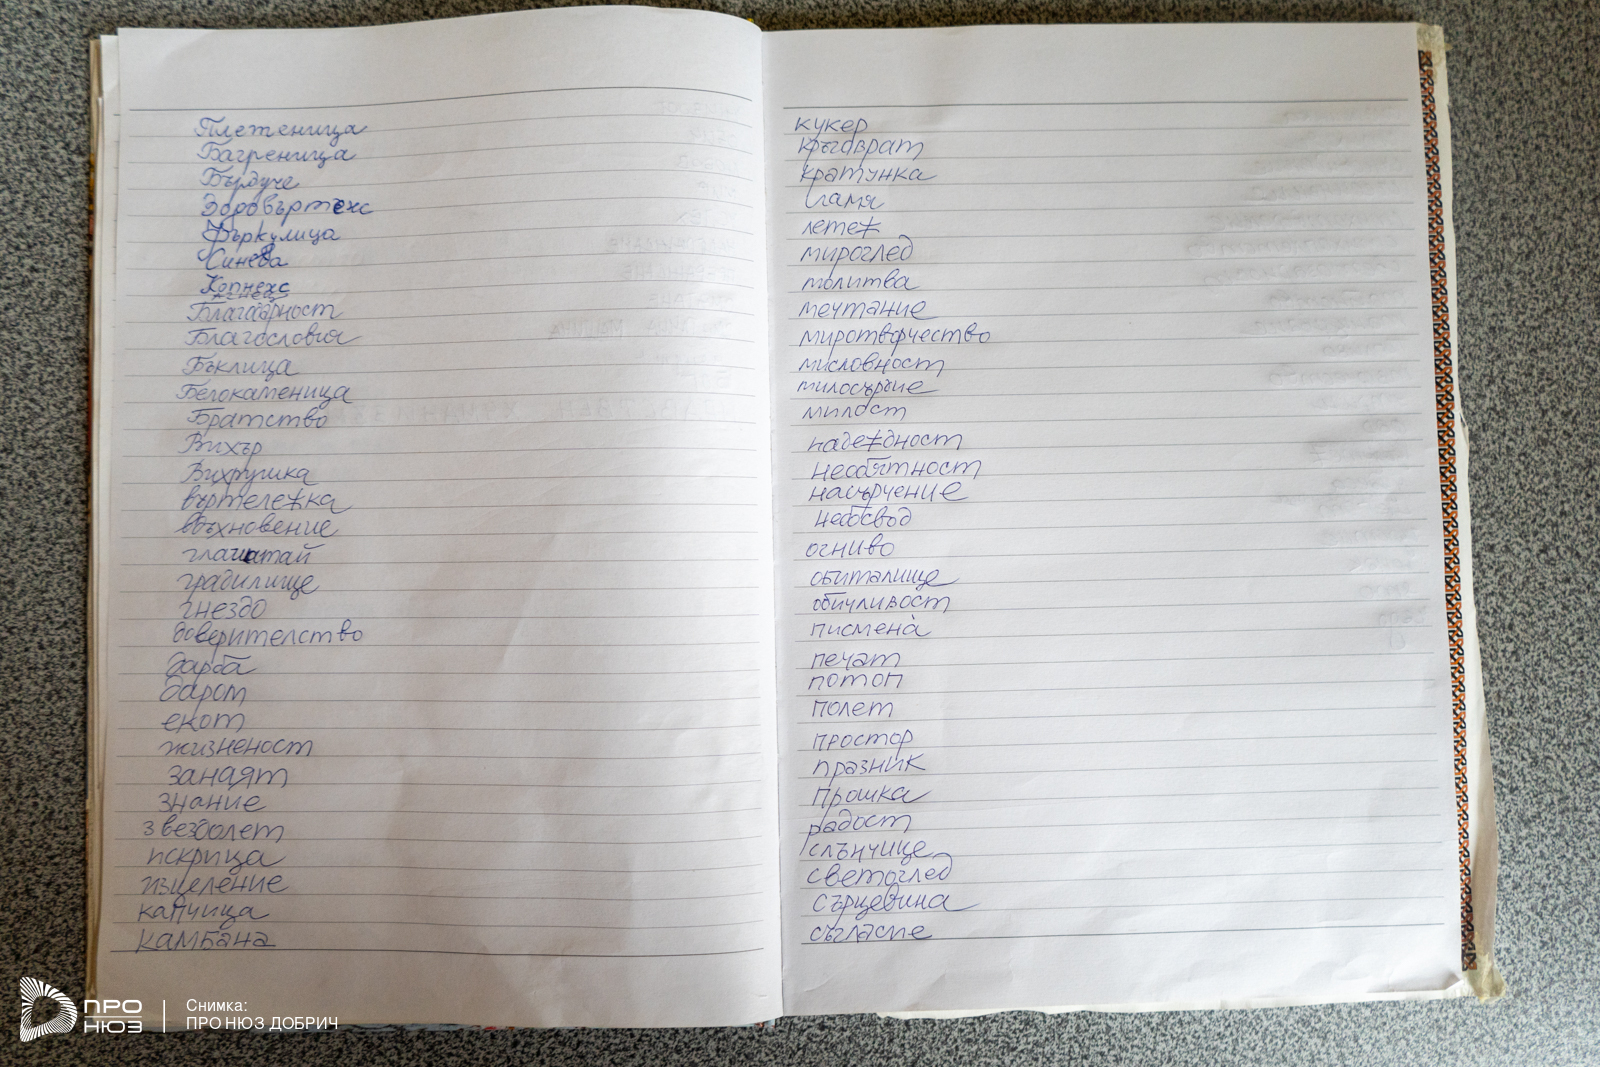 Плетеница
Багреница
Бърдуче
Здраввъртежс
Фъркулица
Синева
Копнежс
Агнец
Благодарност
Благословия
Бъклица
Белокаменица
Братство
Вихър
Вихрушка
въртележка
вдъхновение
глашатай
градилище
гнездо
доверителство
дарба
дарот
екот
жизненост
занаят
знание
звездолет
искрица
изцеление
капчица
камбана
кукер
кръговрат
кратунка
гамя
летеж
мироглед
молитва
мечтание
миротворчество
мисловност
милосърдие
милост
надеждност
необятност
насърчение
небосвод
огниво
обиталище
обичливост
писмена̀
печат
потоп
полет
простор
празник
прошка
радост
слънчице
светоглед
сърцевина
съгласие
ПРО НЮЗ
Снимка:
ПРО НЮЗ ДОБРИЧ